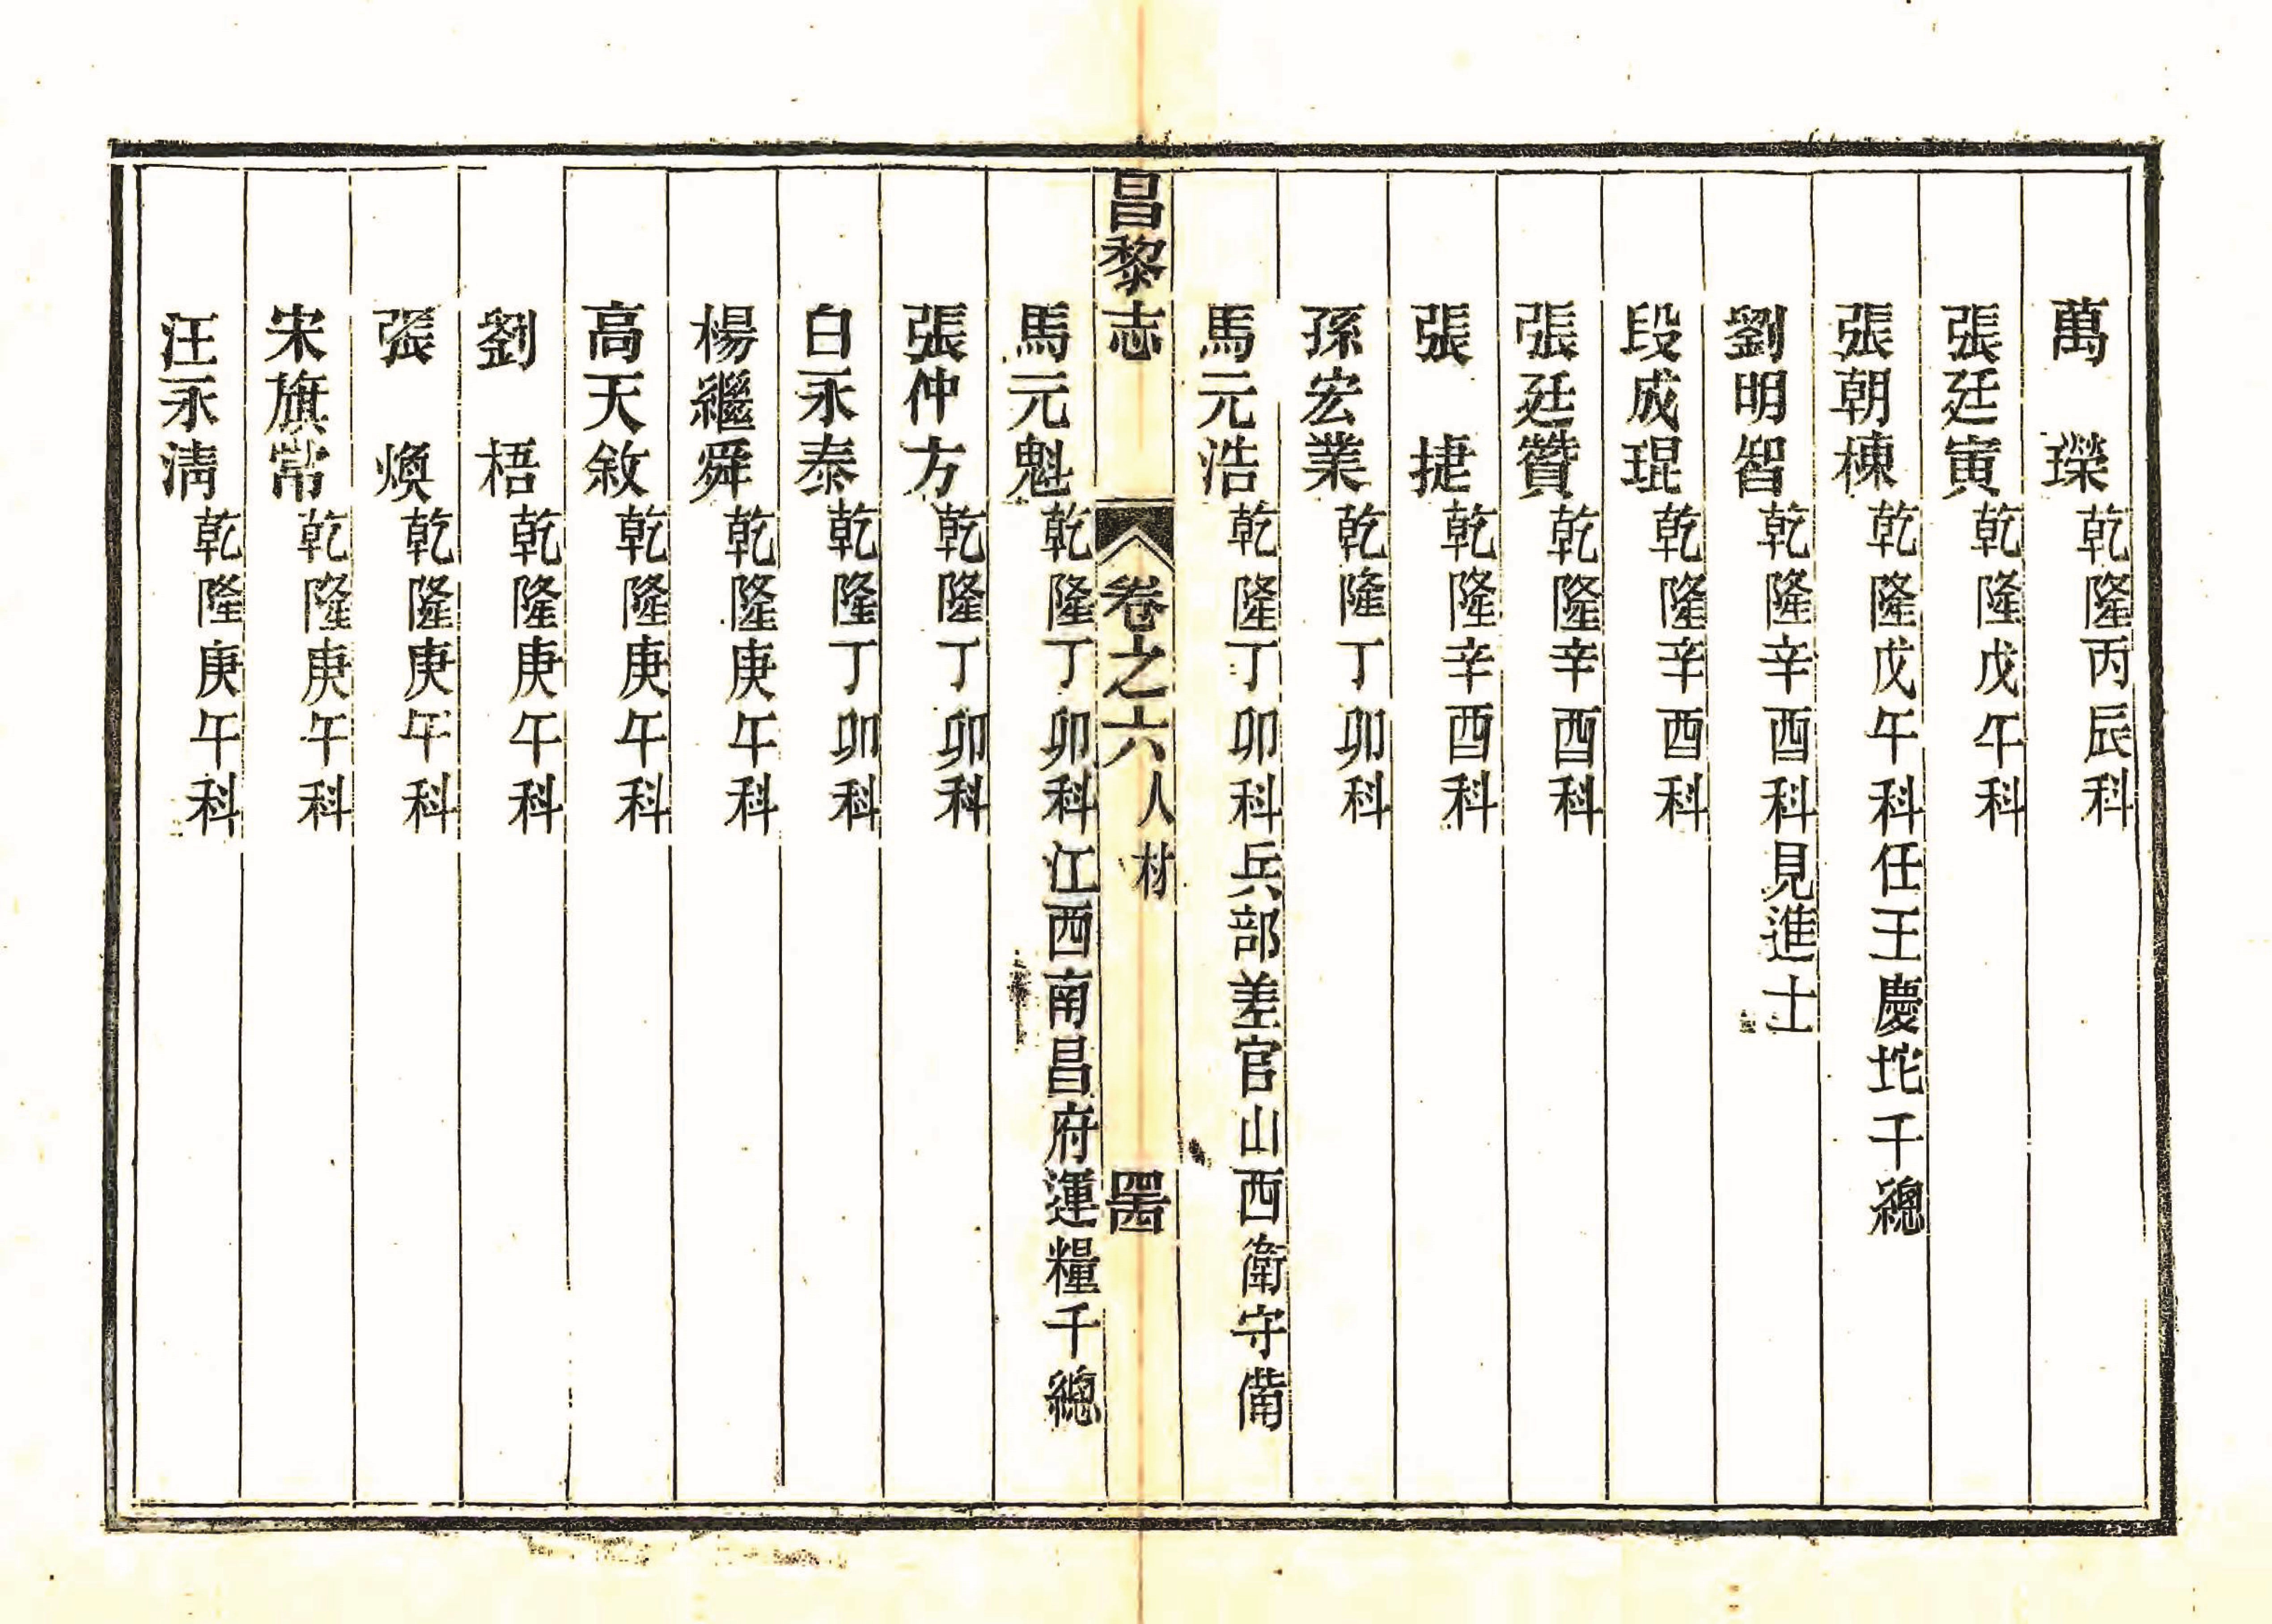 萬瑔乾隆丙辰科
張廷寅乾隆戊午科
張朝棟乾隆戊午科任王慶坨千總
劉明智乾隆辛酉科見進士
段成琨乾隆辛酉科
張廷贊乾隆辛酉科
張捷乾隆辛酉科
孫宏業乾隆丁卯科
馬元浩乾隆丁卯科兵部差官山西衛守備
昌黎志 卷之六 人材 四十四
馬元魁乾隆丁卯科江西南昌府運糧千總
張仲方乾隆丁卯科
白永泰乾隆丁卯科
楊繼舜乾隆庚午科
高天敘乾隆庚午科
劉梧乾隆庚午科
張煥乾隆庚午科
宋旗常乾隆庚午科
汪永清乾隆庚午科